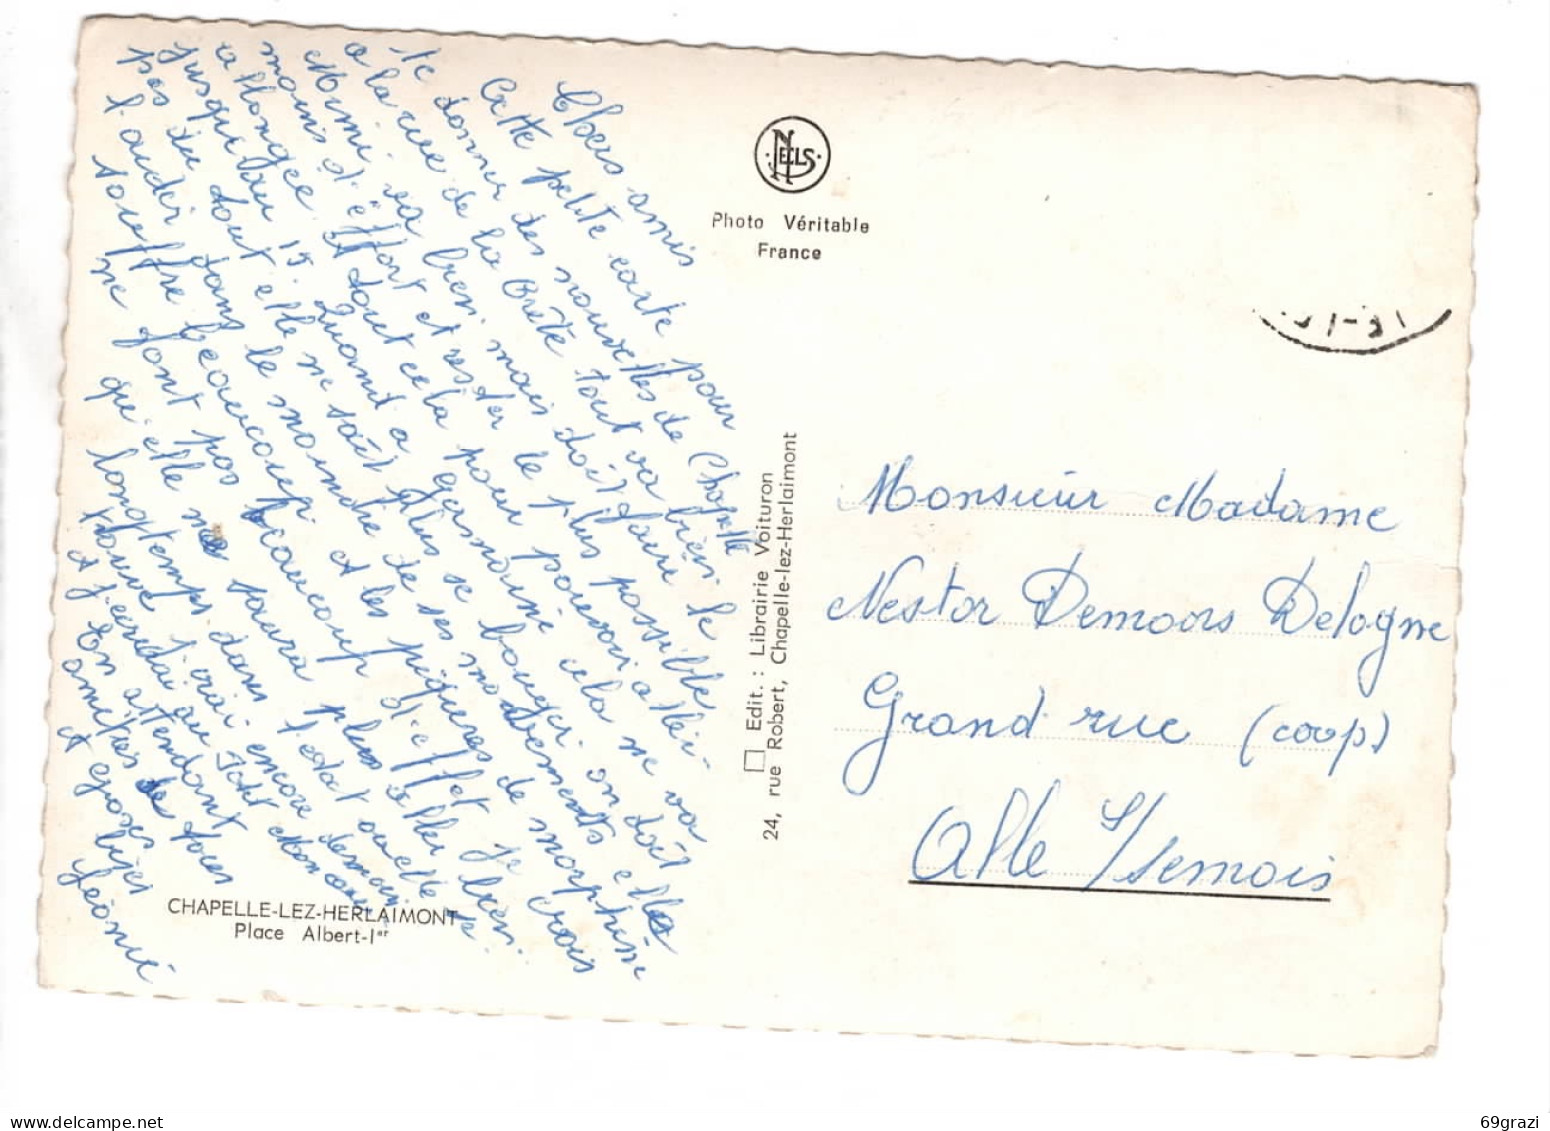 Chers amis
Cette petite carte pour
te donner des nouvelles de Chapelle
a la rue de la Brète tout va bien le
Mimi va bien mais doit faire le
moins d'effort et rester le plus possible
allongée. Et tout cela pour pouvoir aller
jusqu'au 15. Quant a Germaine cela ne va
pas du tout elle ne sait plus se bouger. on doit
l'aider dans le moindre de ses mouvements elle
souffre beaucoup et les piqures de morphine
ne font pas beaucoup d'effet je crois
qu'elle ne saura plus aller bien
longtemps dans l'état ou elle se
trouve j'irai encore demain
et j'irai au
En attendant
amitiés de tous
et gros bises
Léonie
CHAPELLE-LEZ-HERLAIMONT
Place Albert-Ier
NELS
Photo Véritable
France
Edit. : Librairie Voituron
24, rue Robert, Chapelle-lez-Herlaimont
Monsieur Madame
Nestor Demoors Delogne
Grand rue (coop)
Alle S/Semois
www.delcampe.net
69grazi